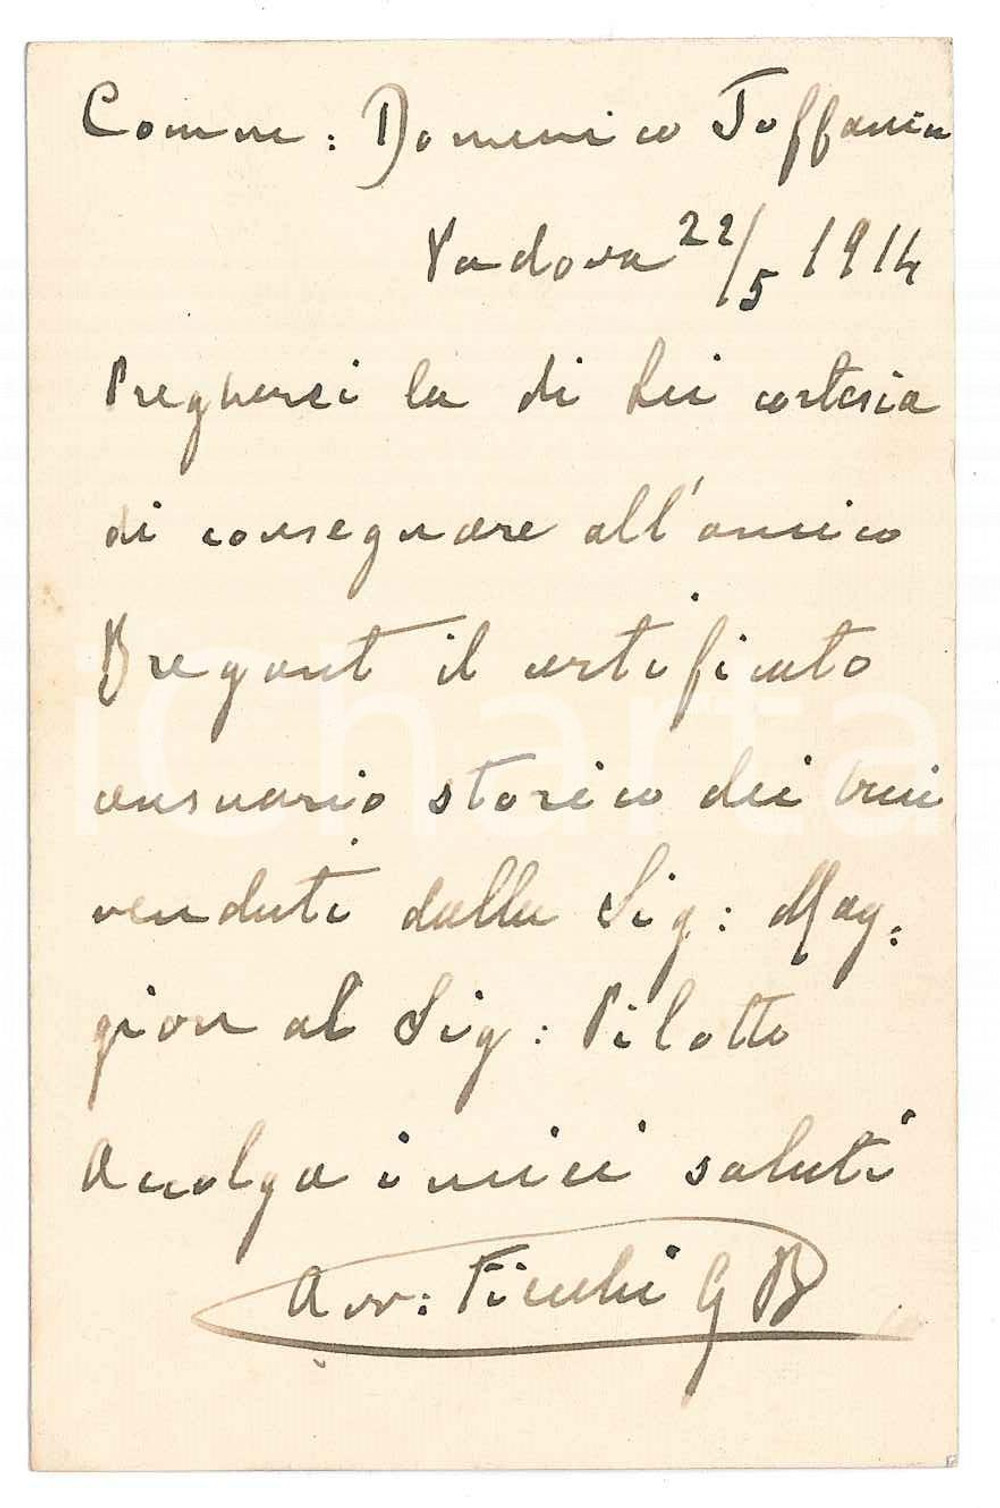 Comm: Domenico Toffanin
Padova 22/5 1914
Pregherei la di Lei cortesia
di consegnare all'amico
Bregant il certificato
censuario storico dei beni
venduti dalla Sig: Mag:
gion al Sig: Pilotto
Accolga i miei saluti
Avv: G B
iCharta